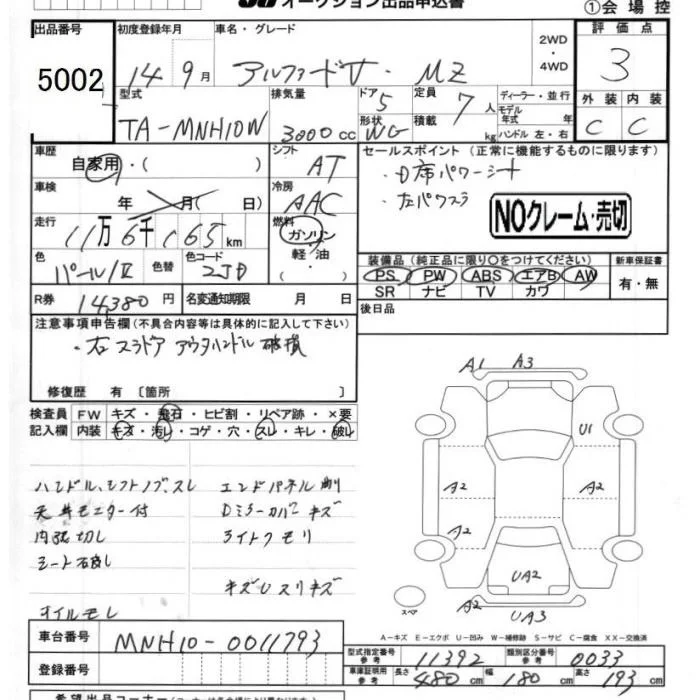 オークション出品申込書
①会場控
出品番号 5002
初度登録年月 14年9月
車名・グレード アルファードV・MZ
2WD・4WD
評価点 3
型式 TA-MNH10W
排気量 3000cc
ドア 5
形状 WG
定員 7人
積載 kg
ディーラー・並行
モデル年式 年式
ハンドル 左・右
外装 C
内装 C
車歴 自家用・( )
シフト AT
セールスポイント (正常に機能するものに限ります)
・D席パワーシート
・左パワスラ
NOクレーム・売切
車検 年 月( 日)
冷房 AAC
走行 11万6千165km
燃料 ガソリン・軽油・( )
色 パール/II
色替
色コード 2JD
装備品 (純正品に限り○をつけてください)
PS PW ABS エアB AW
SR ナビ TV カワ
新車保証書 有・無
R券 14380円
名変通知期限 月 日
後日品
注意事項申告欄(不具合内容等は具体的に記入して下さい)
・右スラドア アウタハンドル破損
修復歴 有〔箇所 〕
検査員記入欄
FW キズ・飛石・ヒビ割・リペア跡・×要
内装 キズ・汚レ・コゲ・穴・スレ・キレ・破レ
ハンドル、シフトノブ、スレ
エンドパネル
天井モニター付
Dミラーカバーキズ
内張切レ
ライトクモリ
シート
キズUスリキズ
オイルモレ
A1 A3
U1
A2 A2 A2
UA2
スペア
A2 UA3
A-キズ E-エクボ U-凹み W-補修跡 S-サビ C-腐食 XX-交換済
車台番号 MNH10-0011793
登録番号
型式指定番号 参考 11392
類別区分番号 参考 0033
車庫証明用 参考 長さ 480cm 幅 180cm 高さ 193cm